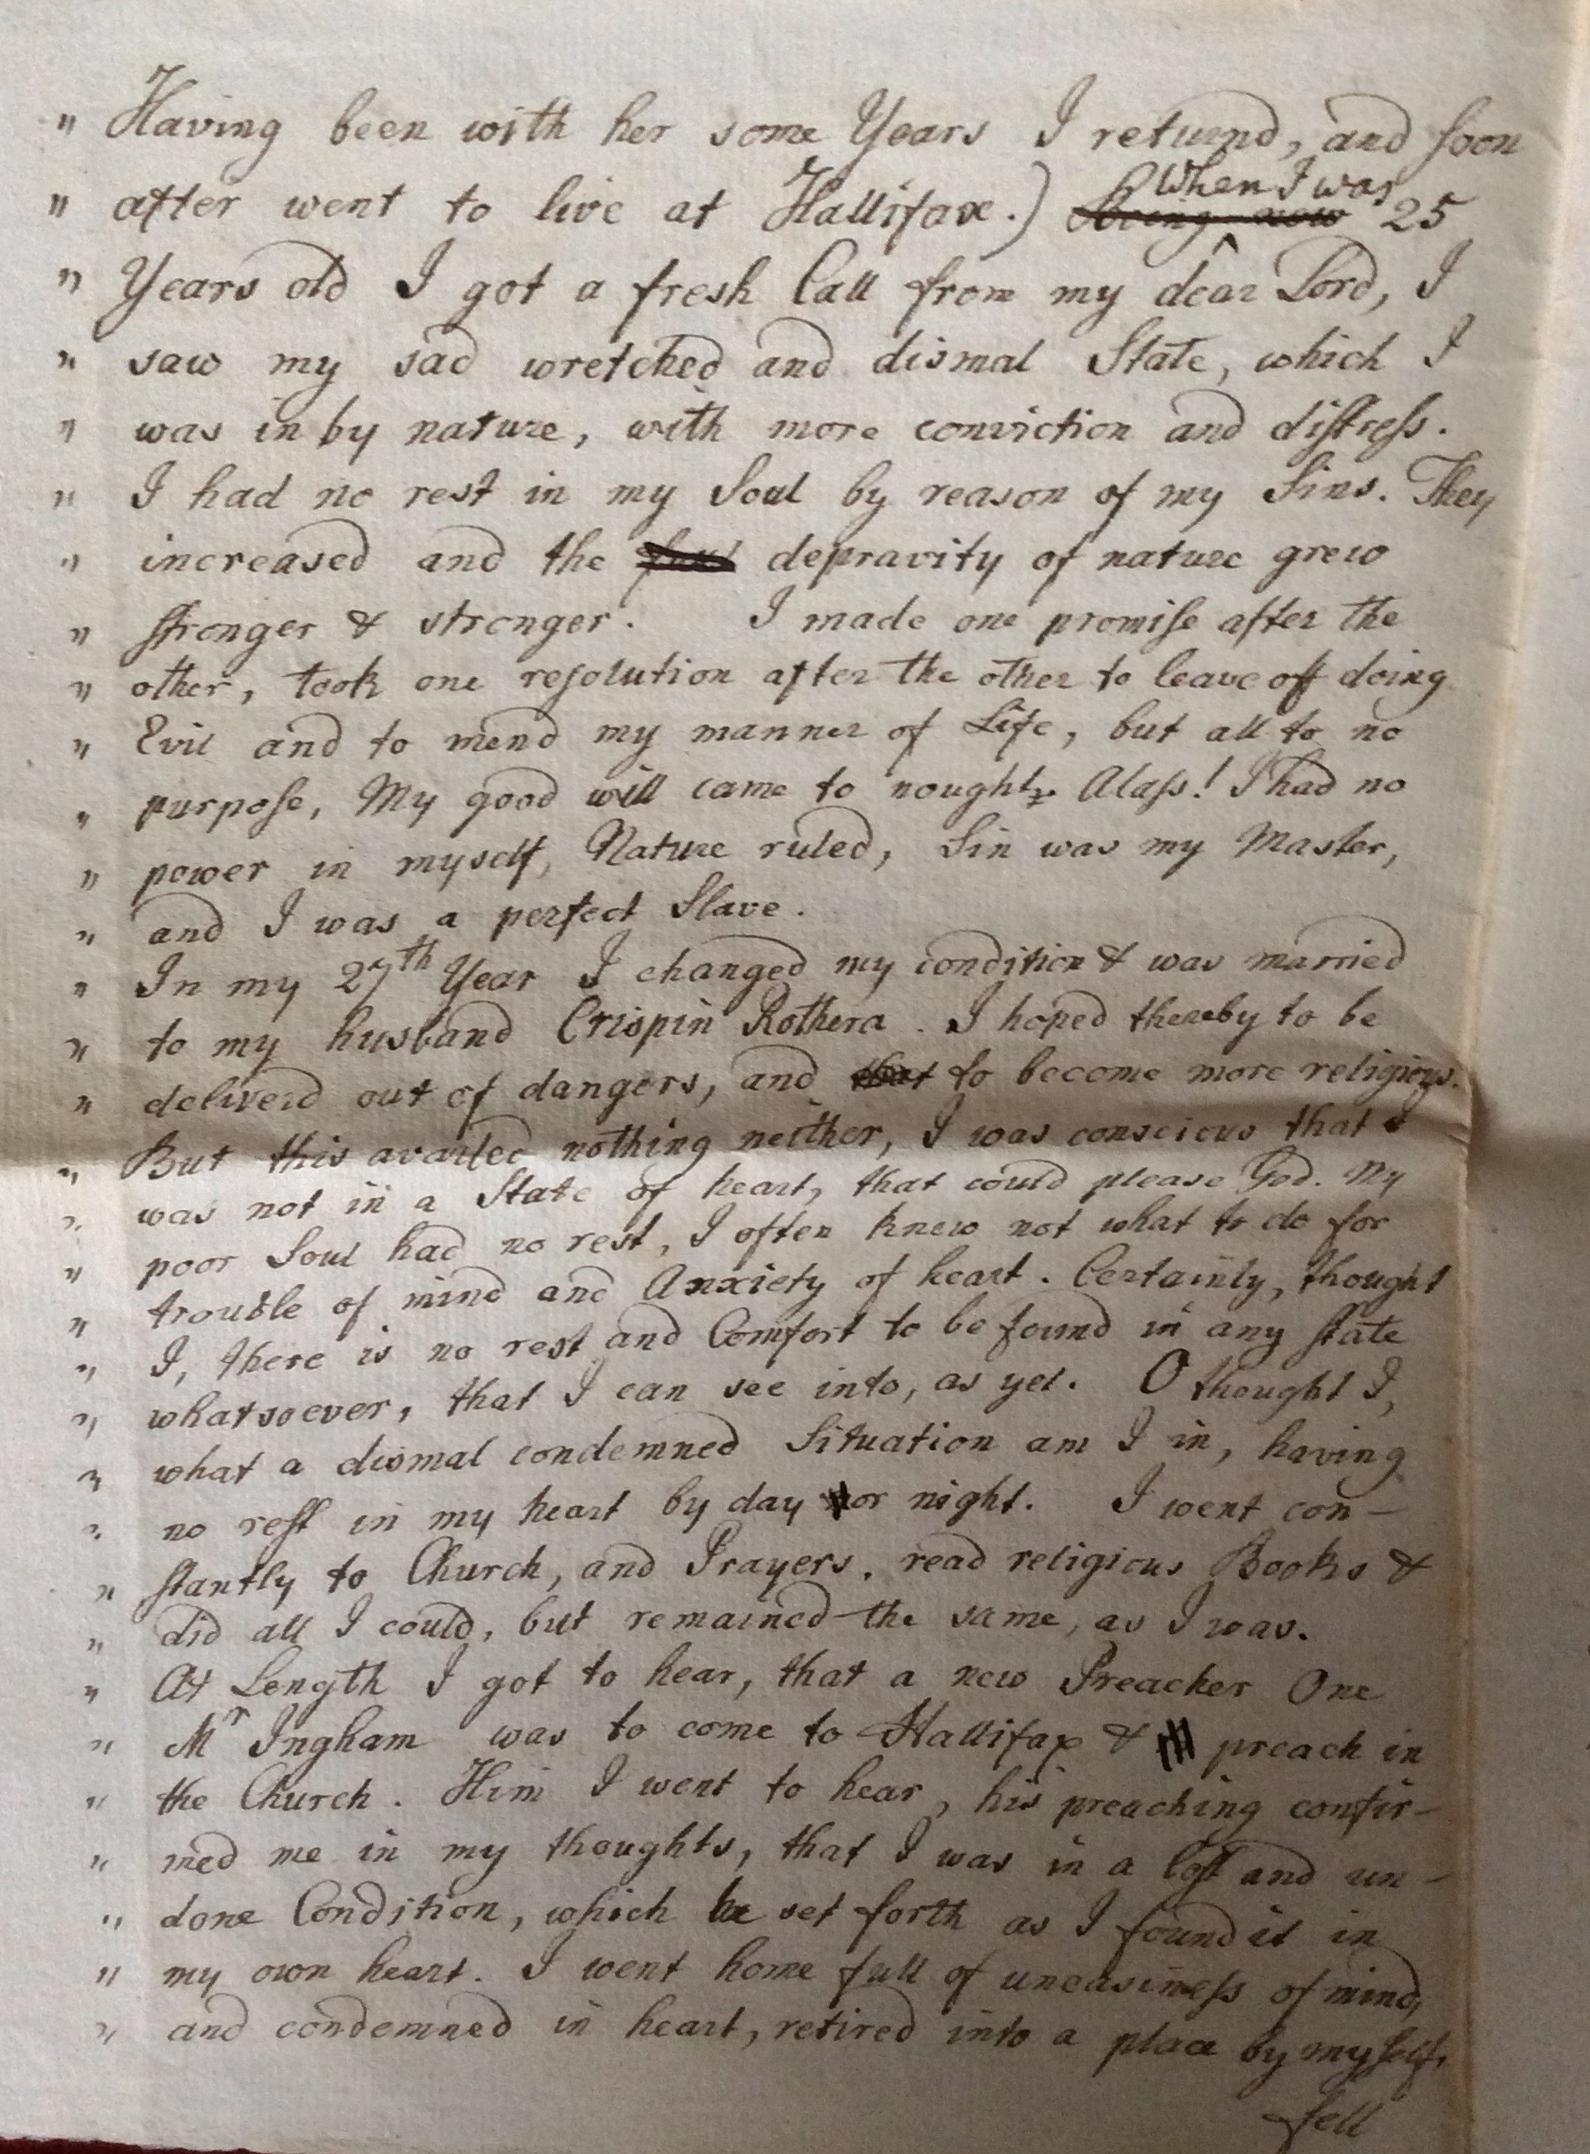 " Having been with her some Years I returnd, and soon
" after went to live at Hallifax.) Being now When I was 25
" Years old I got a fresh Call from my dear Lord, I
" saw my sad wretched and dismal State, which I
" was in by nature, with more conviction and distress.
" I had no rest in my Soul by reason of my Sins. They
" increased and the depravity of nature grew
" stronger & stronger. I made one promise after the
" other, took one resolution after the other to leave off doing
" Evil and to mend my manner of Life, but all to no
" purpose, My good will came to nought. Alass! I had no
" power in myself, Nature ruled, Sin was my Master,
" and I was a perfect Slave.
" In my 27th Year I changed my condition & was married
" to my husband Crispin Rothera. I hoped thereby to be
" deliverd out of dangers, and that to become more religious.
" But this availed nothing neither, I was conscious that I
" was not in a State of heart, that could please God. My
" poor Soul had no rest, I often knew not what to do for
" trouble of mind and Anxiety of heart. Certainly, thought
" I, there is no rest and Comfort to be found in any State
" whatsoever, that I can see into, as yet. O thought I,
" what a dismal condemned Situation am I in, having
" no rest in my heart by day or night. I went con-
" stantly to Church, and Prayers, read religious Books &
" did all I could, but remained the same, as I was.
" At Length I got to hear, that a new Preacher One
" Mr Ingham was to come to Hallifax & preach in
" the Church. Him I went to hear, his preaching confir-
" med me in my thoughts, that I was in a lost and un-
" done Condition, which he set forth as I found it in
" my own heart. I went home full of uneasiness of mind,
" and condemned in heart, retired into a place by myself,
fell